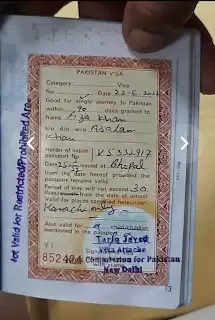 PAKISTAN VISA
Category Visa
No. Date 22-6-
Good for single journey to Pakistan
within 90 days granted to
Khan
s/o d/o w/o Aslam
Khan
Holder of Indian
passport No. K5332917
Date issued at Bhopal
from the date hereof provided the
passport remains valid.
Period of stay will not exceed 30
days from the date of arrival
Valid for places specified hereunder
Karachi only
Also valid for
mentioned in the passport
V I
852474
Tariq Javed
Visa Attache
for Pakistan
New Delhi
Not Valid for Restricted/Prohibited Are
3